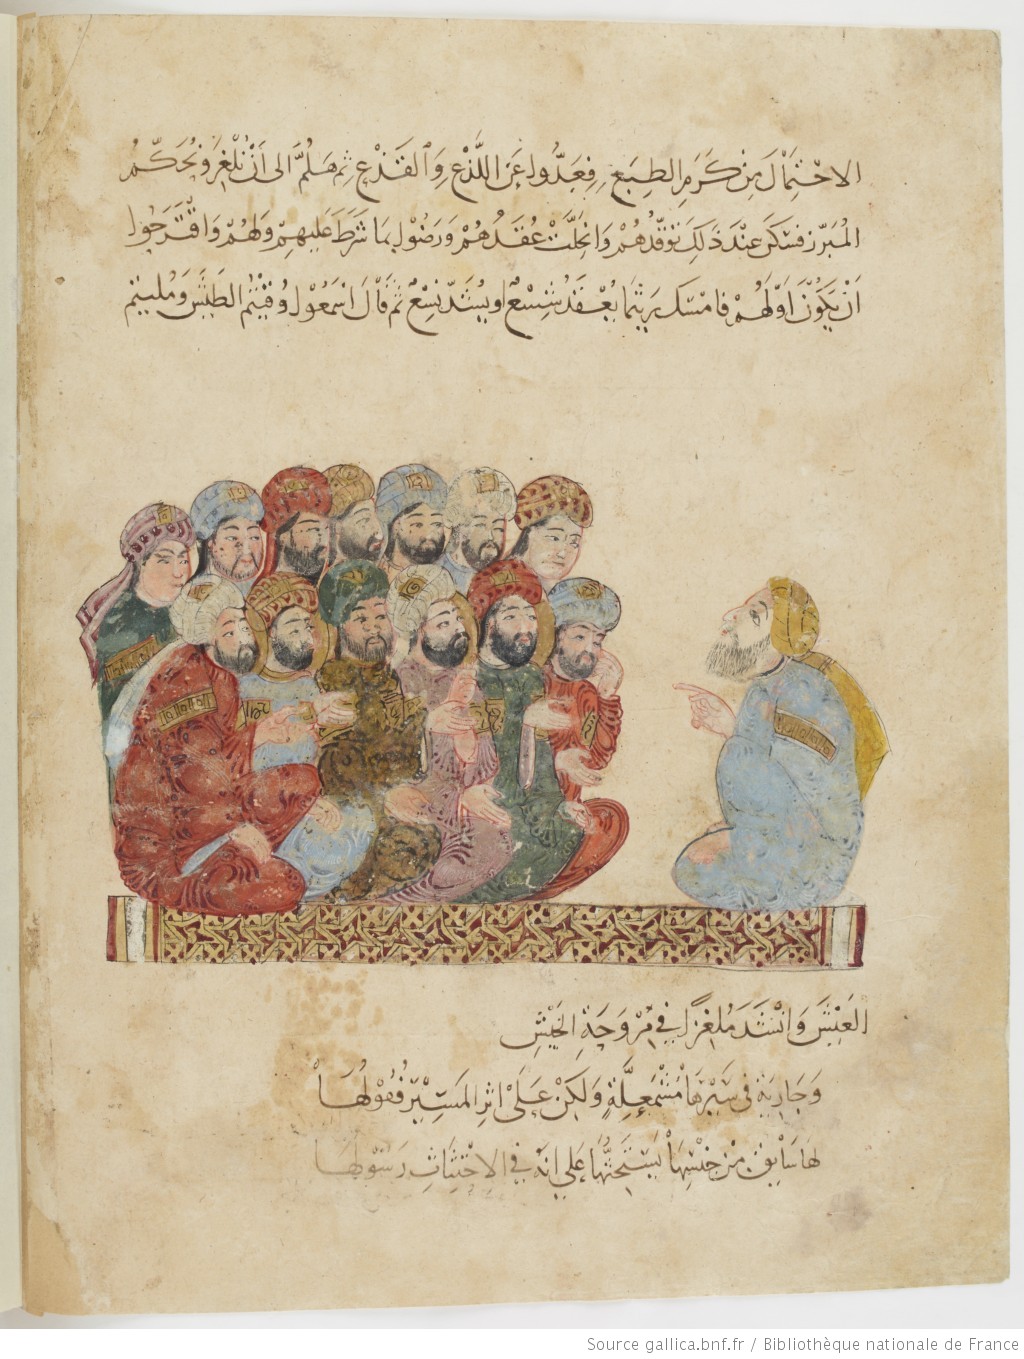 الاحْتِمَالَ مِنْ كَرَمِ الطبَعِ فعَدُّوا عَن اللَّذْعِ وَالقَذْعِ ثم هَلُمَّ الى اَنْ نُلْغِزَ ونُحَكِّمُ
المُبَرّز فسَكَنَ عِنْدَ ذَلِكَ تَوَقّدُهُمْ وَانحَلّتْ عُقَدُهُمْ وَرَضُوا بمَا شَرَطَ عَليهِمْ وَلهُمْ وَاقْتَرَحُوا
اَنْ يَكُونَ اَوّلَهُمْ فامْسَكَ رَيثمَا يُعْقَدُ شِسْعٌ او يُشَدّ نِسْعٌ ثمّ قالَ اسْمَعُوا وُقيْتمُ الطَيْشَ ومُليتم
العَيْشَ وَانْشَدَ مُلغِزًا في مِرْوَحَةِ الخَيْشِ
وَجَاريَةٍ في سَيْرِهَا مُشْمَعِلَّةٍ وَلَكِنْ عَلَى اثرِ المَسِيْرِ قُفُولُهَا
لهَا سَايِقٌ مِنْ جِنْسِهَا يَسْتَحِثُّهَا عَلى انهُ في الاحْتِثَاثِ رَسِيْلُهَا
Source gallica.bnf.fr / Bibliothèque nationale de France